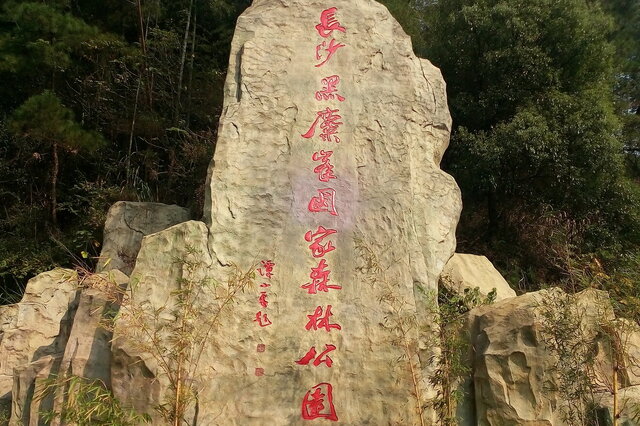 長沙黑麋峯国家森林公園